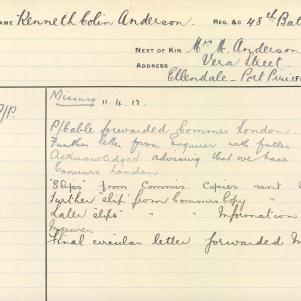 NAME Kenneth Colin Anderson. REG. &c 48th Bat
NEXT OF KIN Mrs M. Anderson
ADDRESS Vera Street
Ellendale - Port Pirie
P/P.
Missing 11.4.17.
P/Cable forwarded Commis London.
Further letter from Enquirer with
Acknowledged advising that we have
London.
"Slips" from Commis. Copies sent
Further slip from Commis. Copy "
Later slips " " Information
Enquirer
Final circular letter forwarded